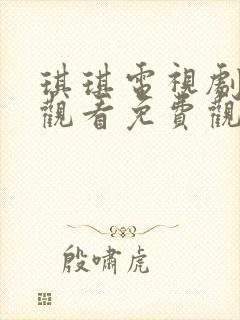 琪琪電視劇
觀看免費觀
殷嘯虎